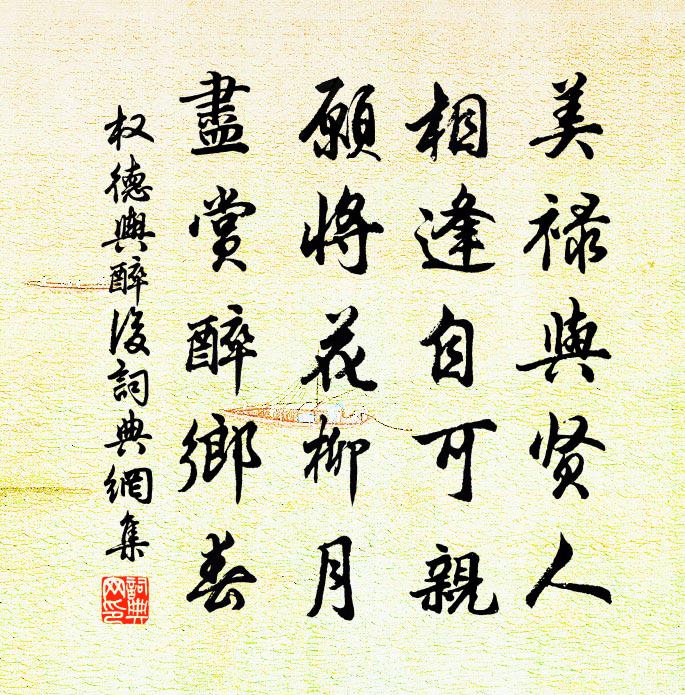 美禄與贤人
相逢自可親
願將花柳月
盡賞醉鄉春
权德輿醉后詞典網集
詞典
网印